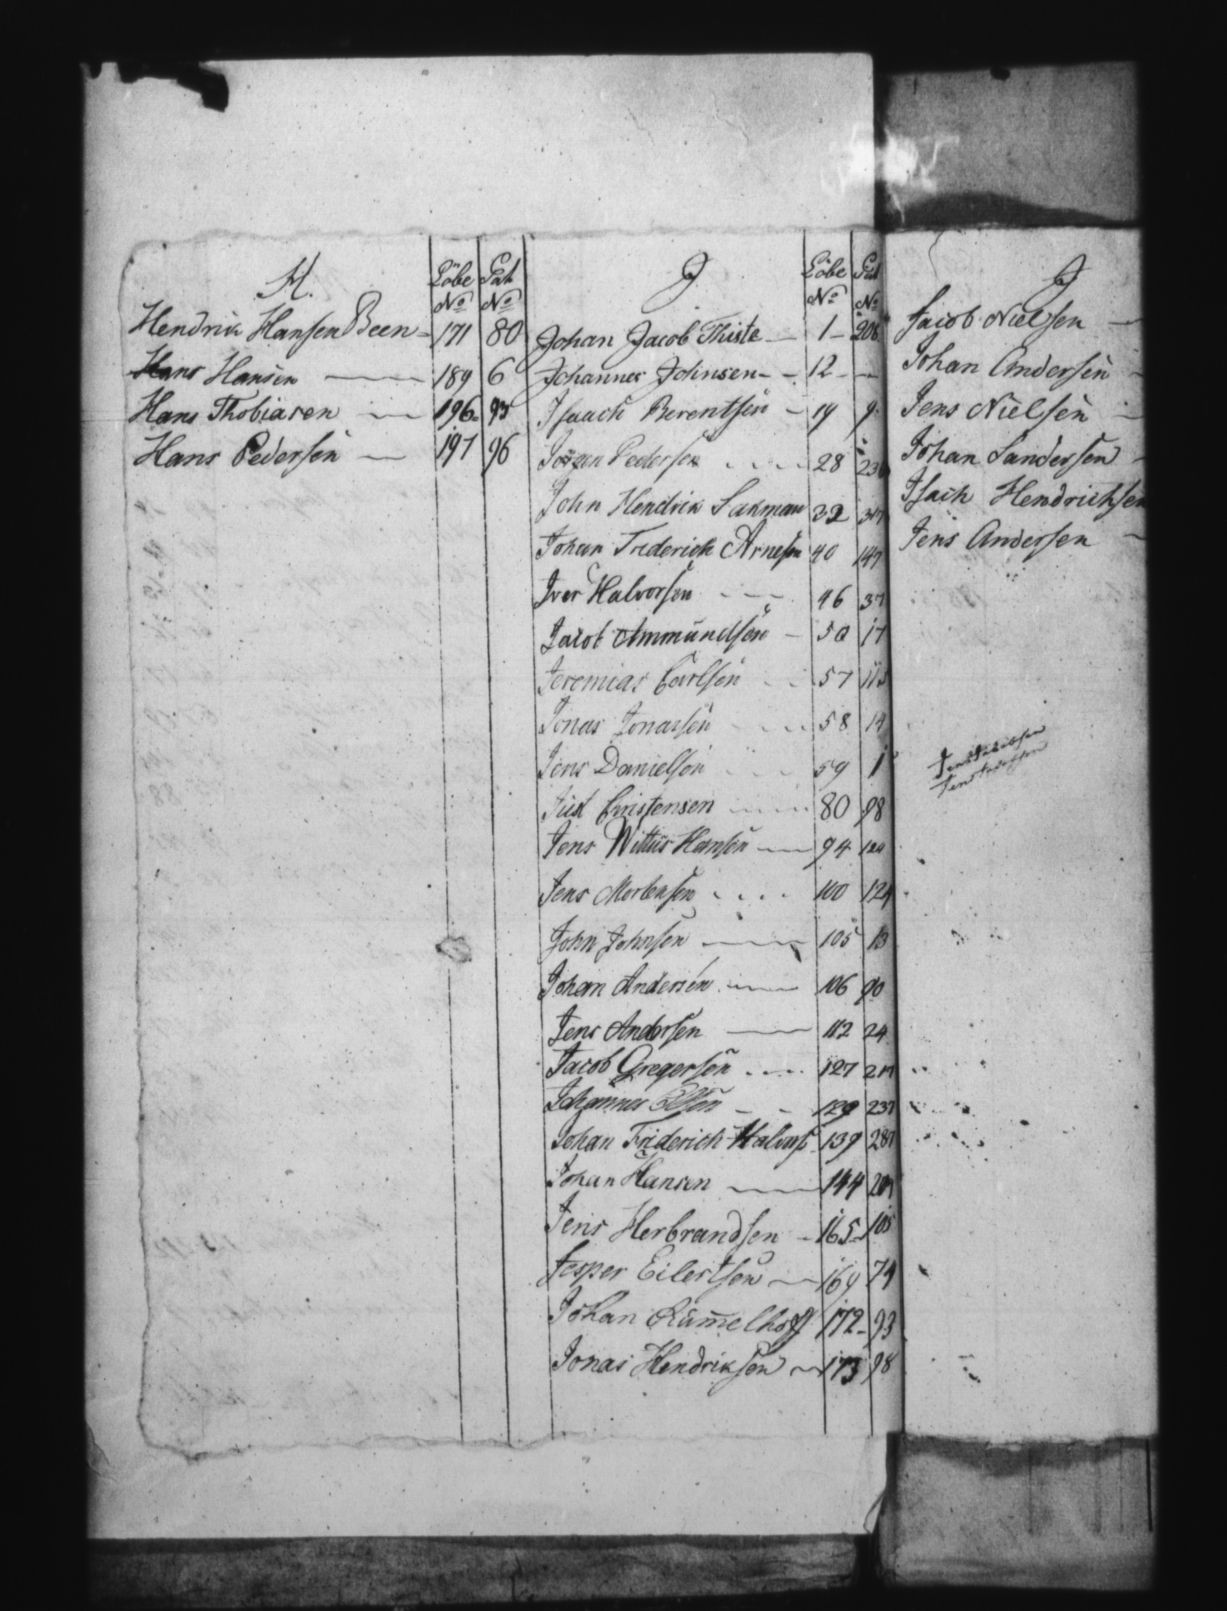 H. Löbe No Pat No
Hendrik Hansen Been - 171 80
Hans Hansen 189 6
Hans Thobiasen 196 93
Hans Pedersen 197 96
J. Löbe No Pat No
Johan Jacob Thiste 1 208
Johannes Johnsen 12
Isaach Berentsen 19 9
Jörgen Pedersen 28
John Hendrik Sakman 32
Johan Friderich Arnesen 40 147
Iver Halvorsen 46 37
Jacob Ammundsen 50 17
Jeremias Carlsen 57 115
Jonas Jonassen 58 14
Jens Danielsen 59 1
Just Christensen 80 98
Jens Wittus Hansen 94
Jens Mortensen 100 124
John Johnsen 105 13
Johan Andersen 106 90
Jens Andersen 112 24
Jacob Gregersen 127
Johannes Olsen 129 237
Johan Friderich Halvors 139 287
Johan Hansen 144
Jens Herbrandsen 165 105
Jesper Eilertsen 169 74
Johan Rumelhoff 172 93
Jonas Hendriksen 173 98
J
Jacob Nielsen
Johan Andersen
Jens Nielsen
Johan Sandersen
Isach Hendrichsen
Jens Andersen
Jens Jacobsen
Jens Jacobsen